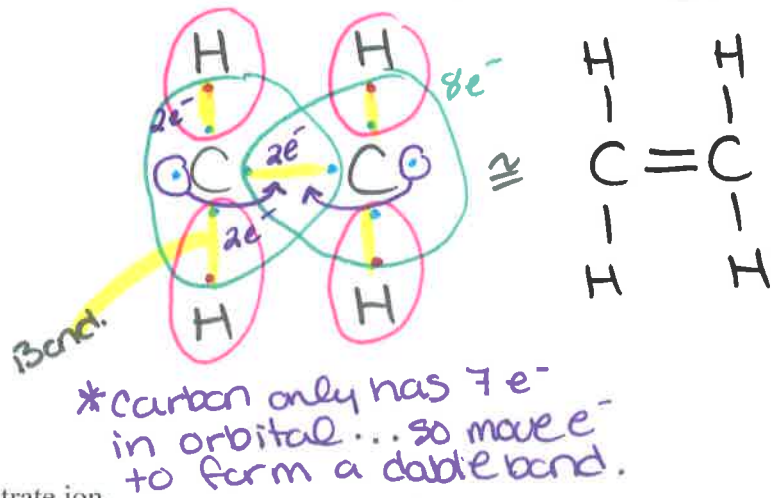 H H
8e⁻
2e⁻
C 2e⁻ C ≅ C=C
2e⁻
H H
H H
H H
Bond.
*Carbon only has 7 e⁻
in orbital... so move e⁻
to form a double bond.
trate ion